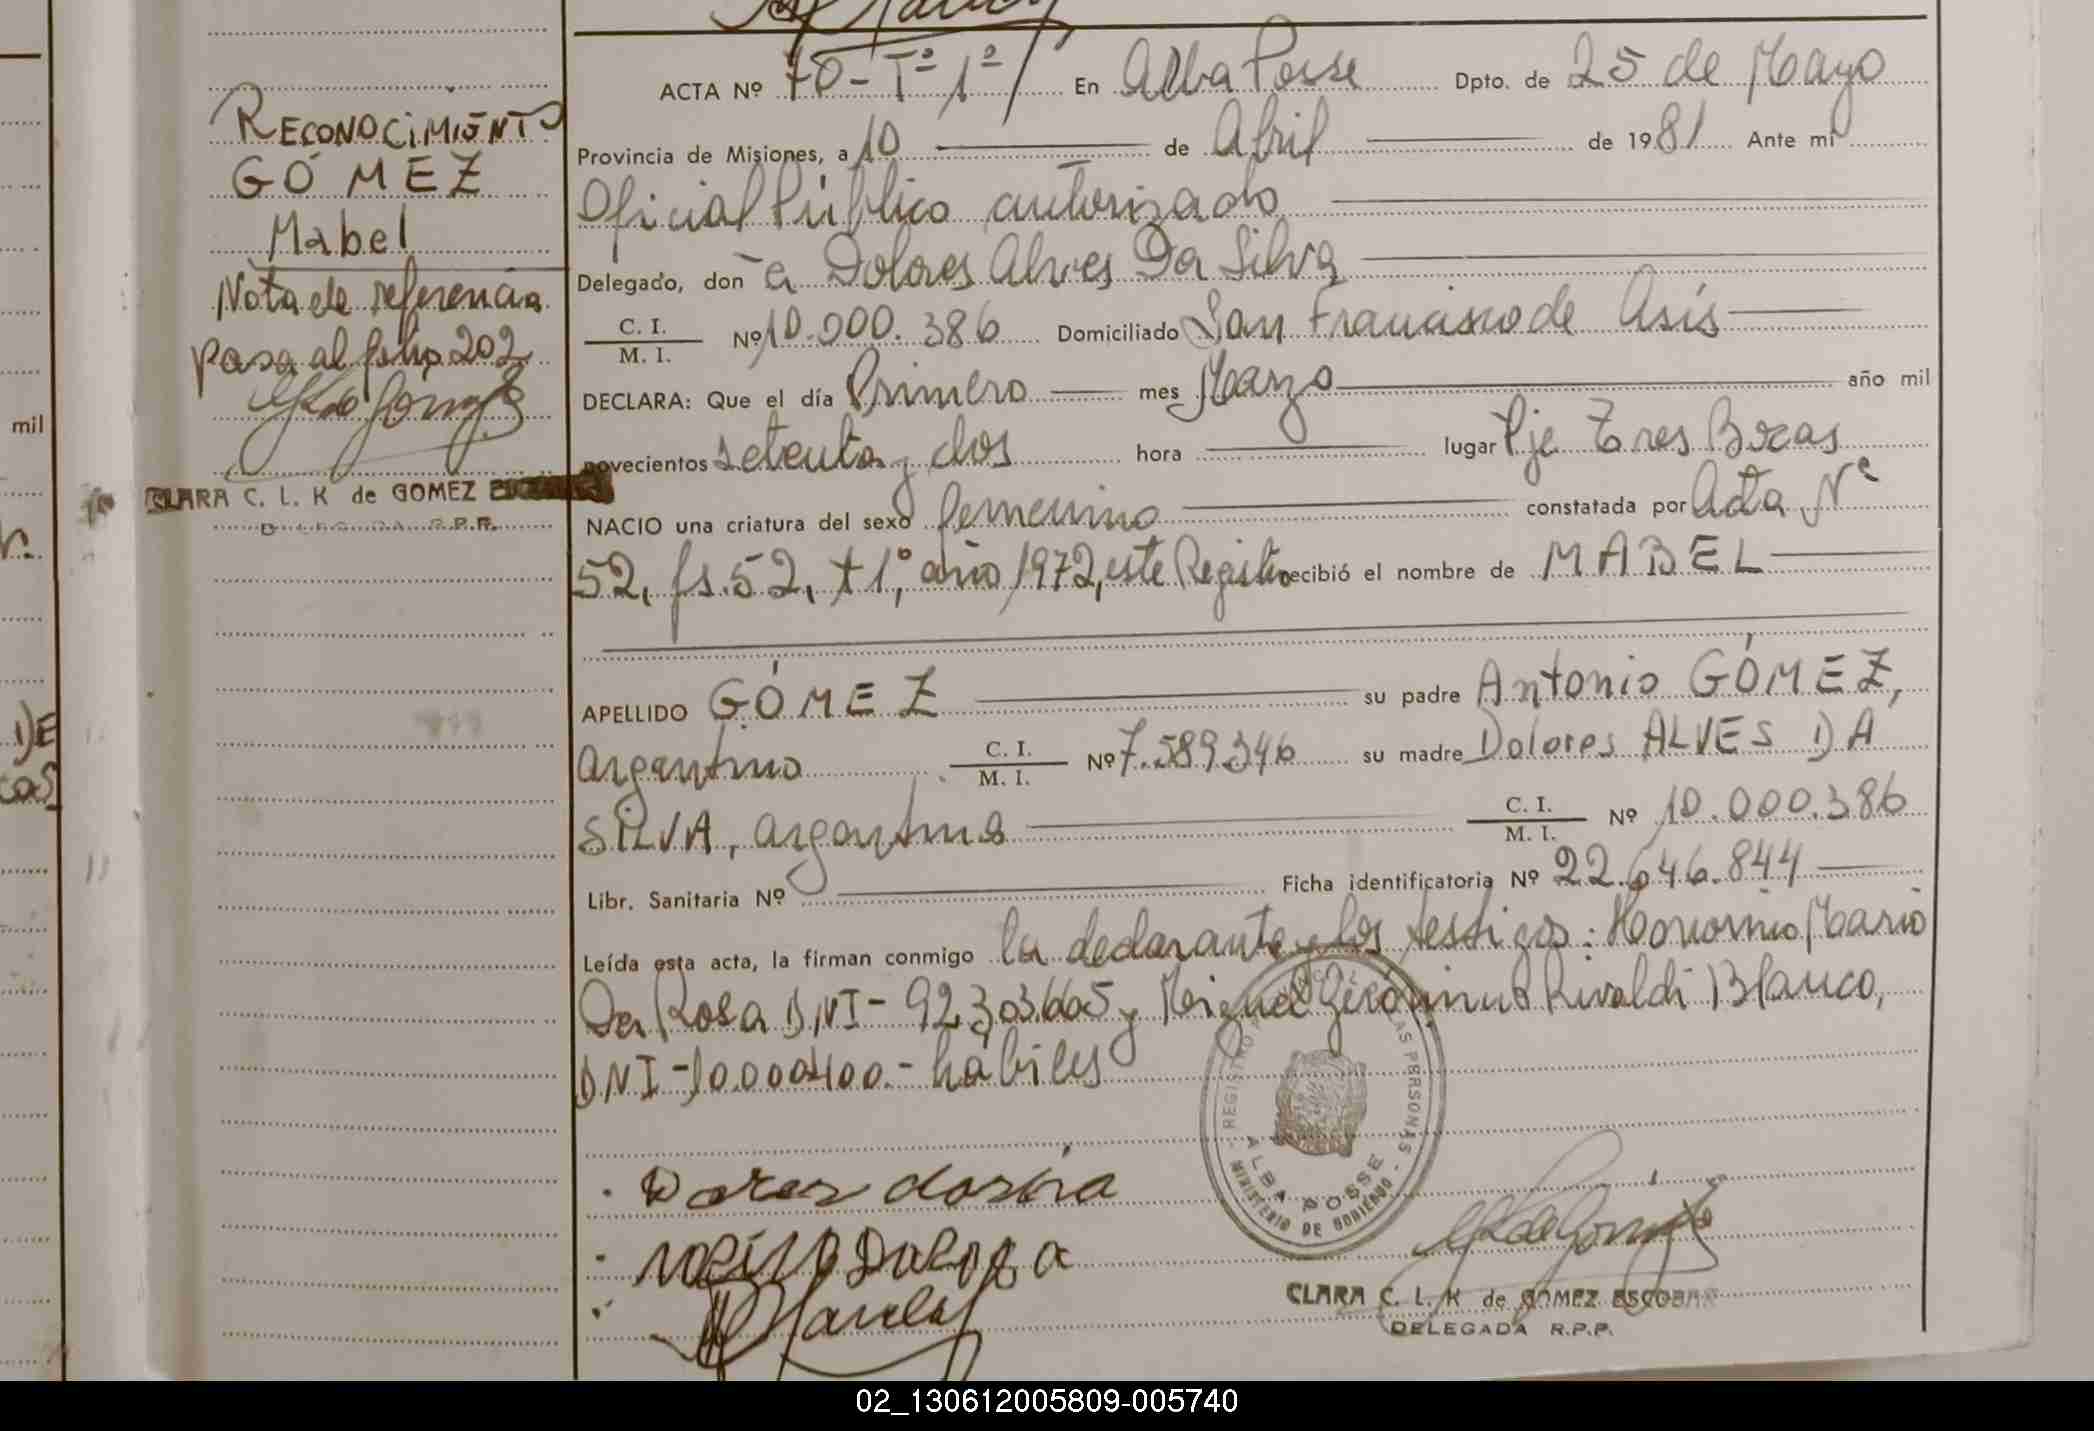 RECONOCIMIENTO
GÓMEZ
Mabel
Nota de referencia
pasa al folio 202
CLARA C. L. K de GOMEZ
ACTA Nº 70 - Tº 1º En Alba Posse Dpto. de 25 de Mayo
Provincia de Misiones, a 10 de Abril de 1981 Ante mi
Oficial Público autorizado
Delegado, don a Dolores Alves Da Silva
C. I.
M. I. Nº 10.000.386 Domiciliado San Francisco de Asís
DECLARA: Que el día Primero mes Marzo año mil
novecientos setenta y dos hora lugar Pje Tres Bocas
NACIO una criatura del sexo femenino constatada por Acta Nº
52, fs.52, t 1º, año 1972, este Registro recibió el nombre de MABEL
APELLIDO GÓMEZ su padre Antonio GÓMEZ,
argentino C. I.
M. I. Nº 7.589.346 su madre Dolores ALVES DA
SILVA, argentina C. I.
M. I. Nº 10.000.386
Libr. Sanitaria Nº Ficha identificatoria Nº 22.646.844
Leída esta acta, la firman conmigo la declarante y los testigos: Honorino Mario
Da Rosa DNI - 92.303.665 y Miguel Gerónimo Rivaldi Blanco,
DNI - 10.000.400.- hábiles
REGISTRO LAS PERSONAS
ALBA POSSE
MINISTERIO DE GOBIERNO
CLARA C. L. K de GOMEZ ESCOBAR
DELEGADA R.P.P.
mil
DE
cas
02_130612005809-005740